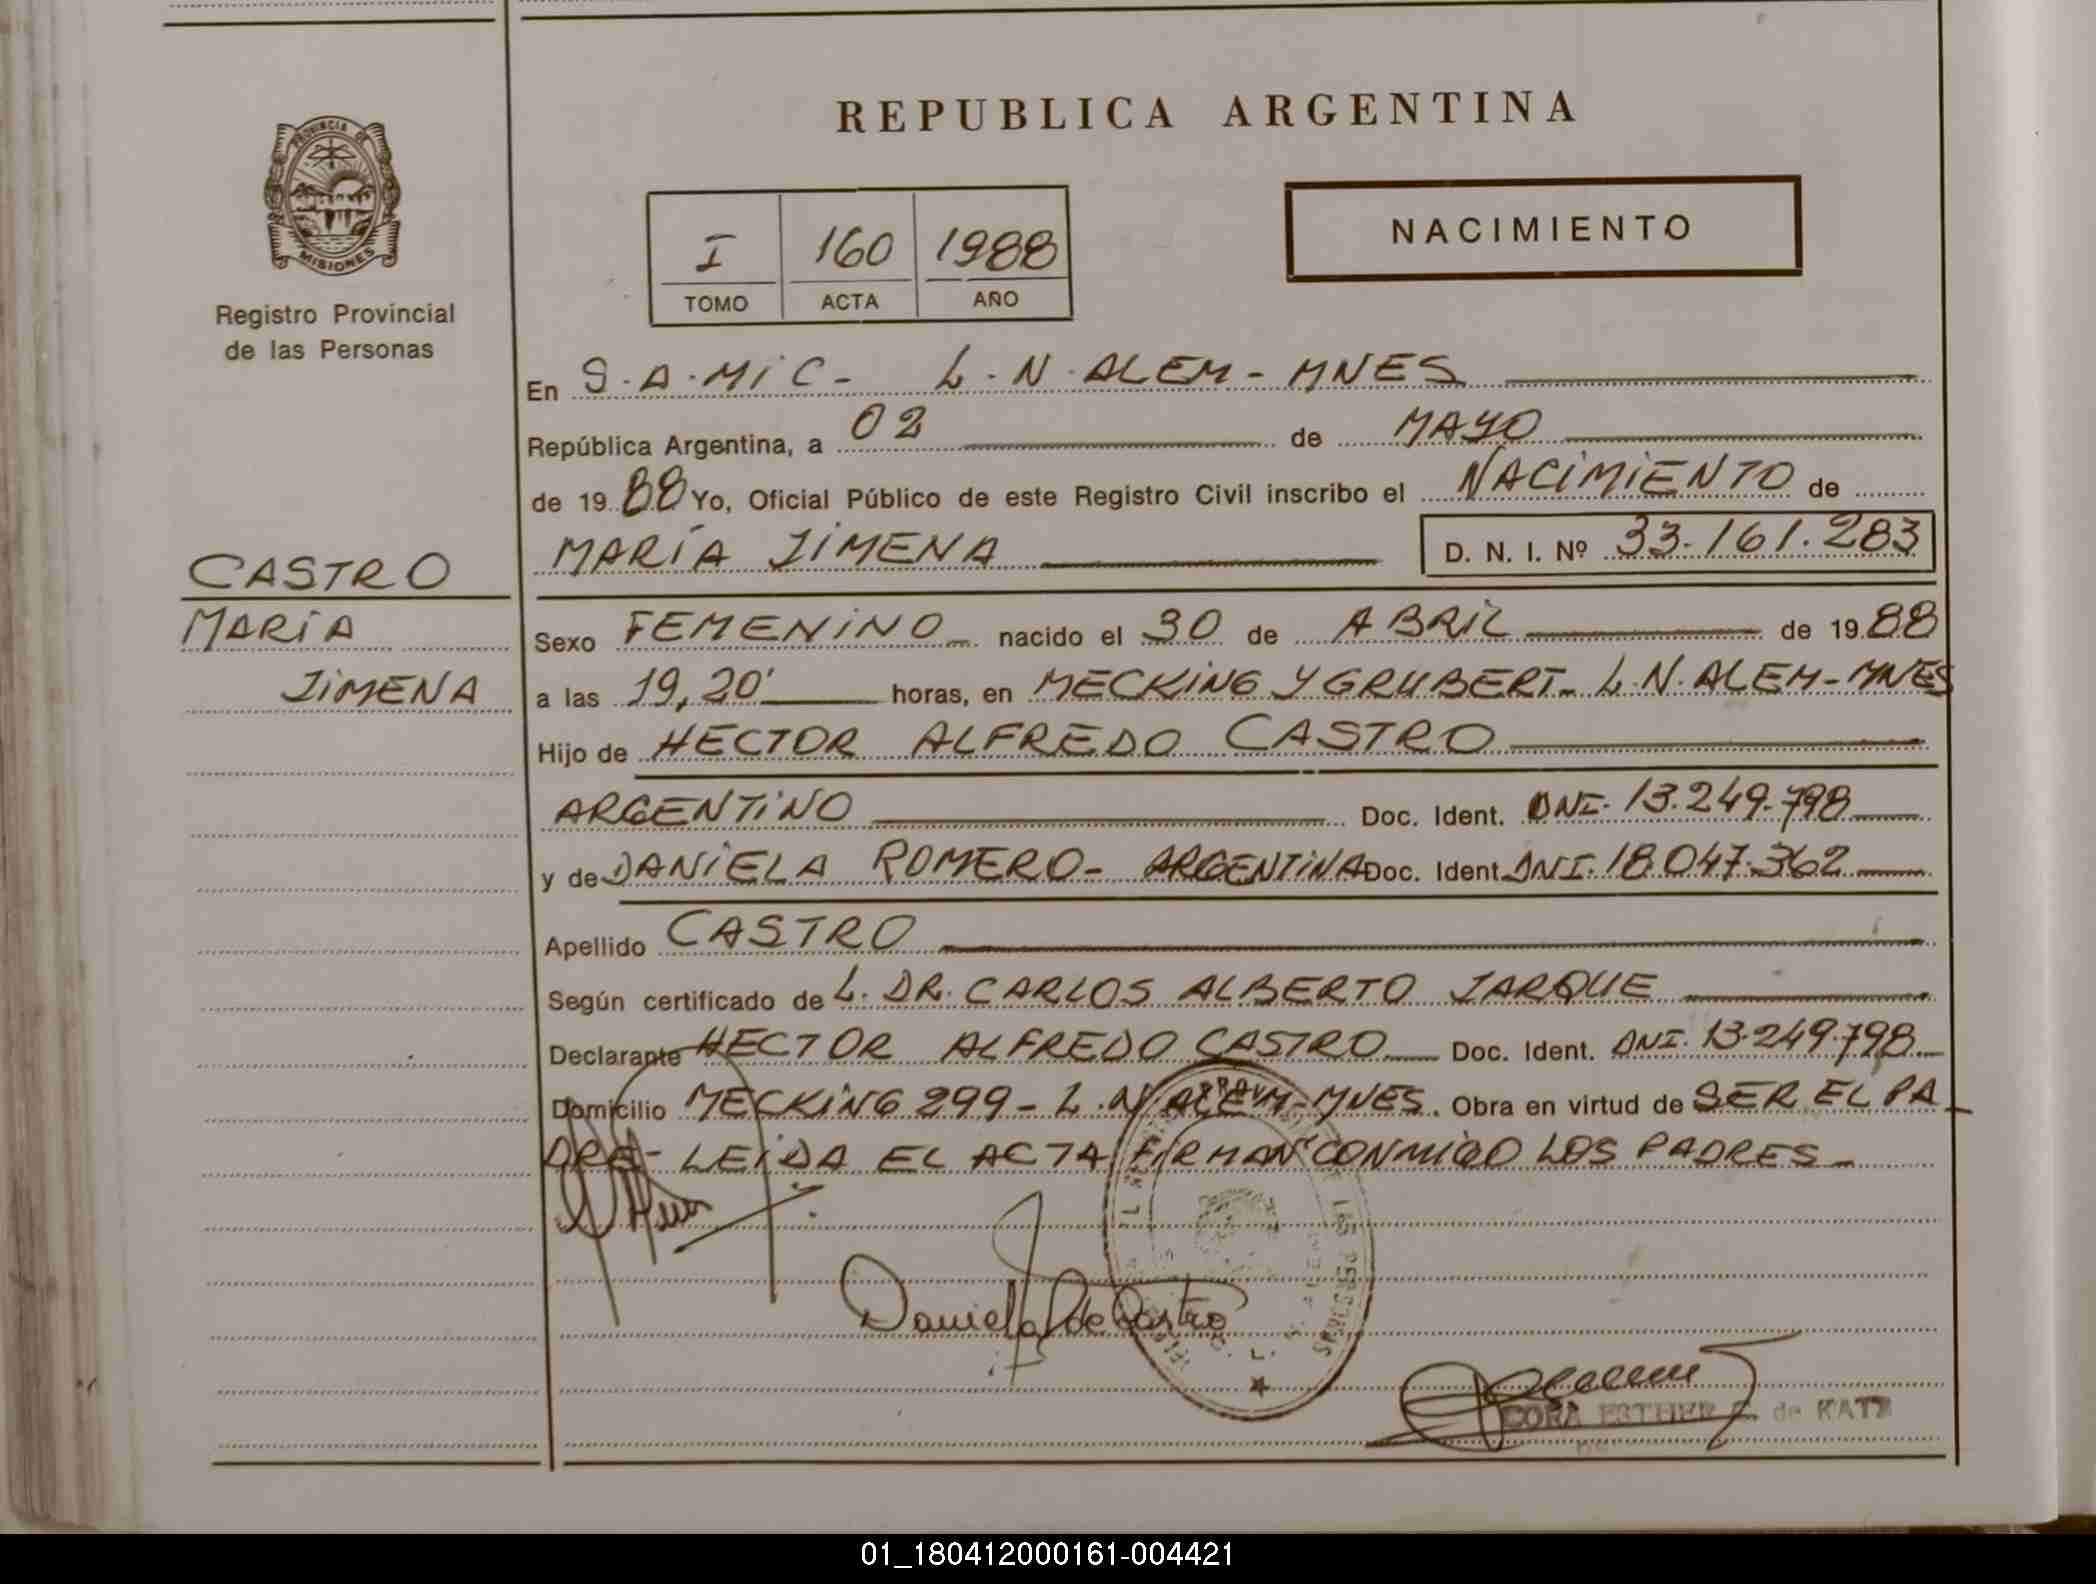 PROVINCIA DE
MISIONES
Registro Provincial
de las Personas
REPUBLICA ARGENTINA
I 160 1988
TOMO ACTA AÑO
NACIMIENTO
En S.A.MiC- L.N.ALEM-MNES
República Argentina, a 02 de MAYO
de 19 88 Yo, Oficial Público de este Registro Civil inscribo el NACiMiENTO de
MARÍA JiMENA D. N. I. Nº 33.161.283
CASTRO
MARÍA
JiMENA
Sexo FEMENiNO nacido el 30 de ABRiL de 19 88
a las 19,20' horas, en MECKiNG Y GRUBERT- L.N.ALEM-MNES
Hijo de HECTOR ALFREDO CASTRO
ARGENTiNO Doc. Ident. DNI. 13.249.798
y de DANiELA ROMERO- ARGENTiNA Doc. Ident DNI. 18.047.362
Apellido CASTRO
Según certificado de L. DR. CARLOS ALBERTO JARQUE
Declarante HECTOR ALFREDO CASTRO Doc. Ident. DNI. 13.249.798
Domicilio MECKiNG 299- L.N.ALEM-MNES. Obra en virtud de SER EL PA
DRE- LEiDA EL ACTA FiRMAN CONMiGO LOS PADRES-
Daniela de Castro
CORA ESTHER de KATZ
01_180412000161-004421